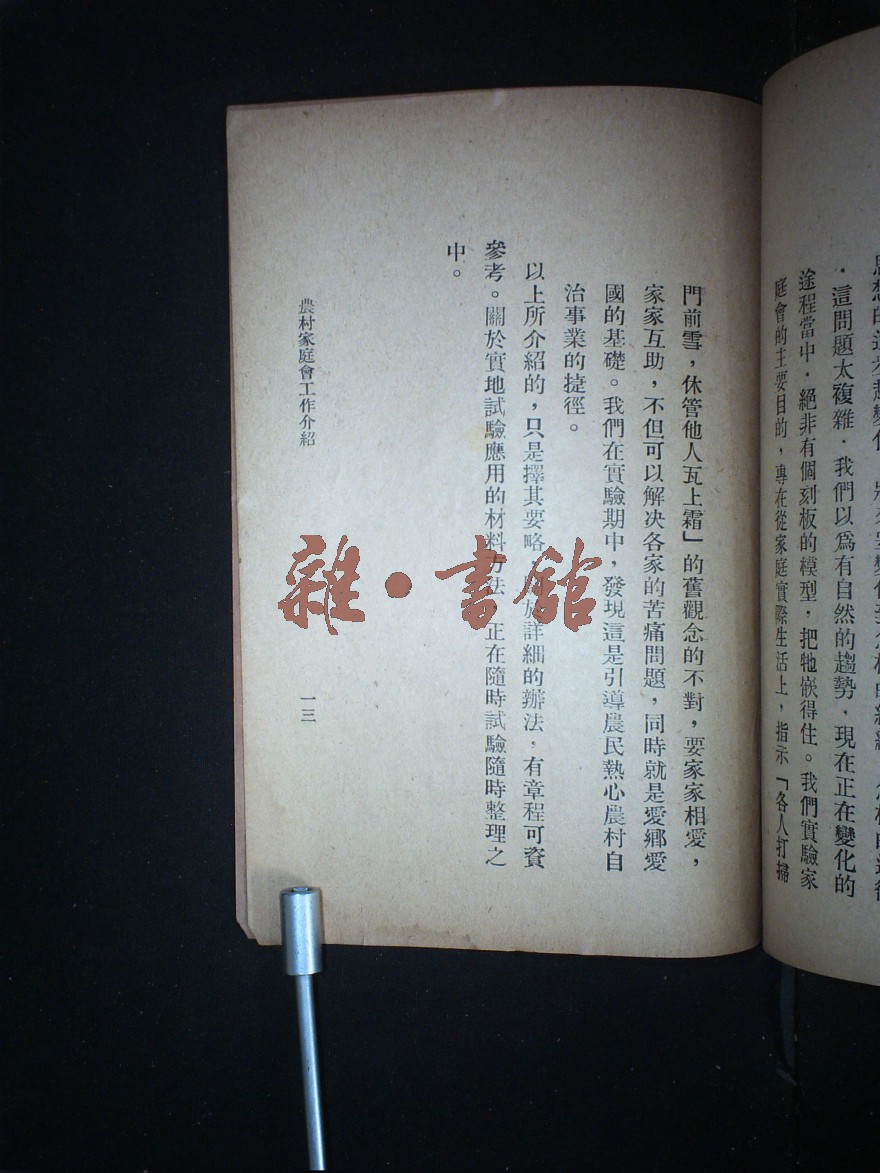 ・這問題太複雜・我們以爲有自然的趨勢・現在正在變化的
途程當中・絕非有個刻板的模型，把牠嵌得住。我們實驗家
庭會的主要目的，專在從家庭實際生活上，指示「各人打掃
門前雪，休管他人瓦上霜」的舊觀念的不對，要家家相愛，
家家互助，不但可以解決各家的苦痛問題，同時就是愛鄉愛
國的基礎。我們在實驗期中，發現這是引導農民熱心農村自
治事業的捷徑。
以上所介紹的，只是擇其要略，於詳細的辦法，有章程可資
參考。關於實地試驗應用的材料方法，正在隨時試驗隨時整理之
中。
農村家庭會工作介紹
一三
雜・書館